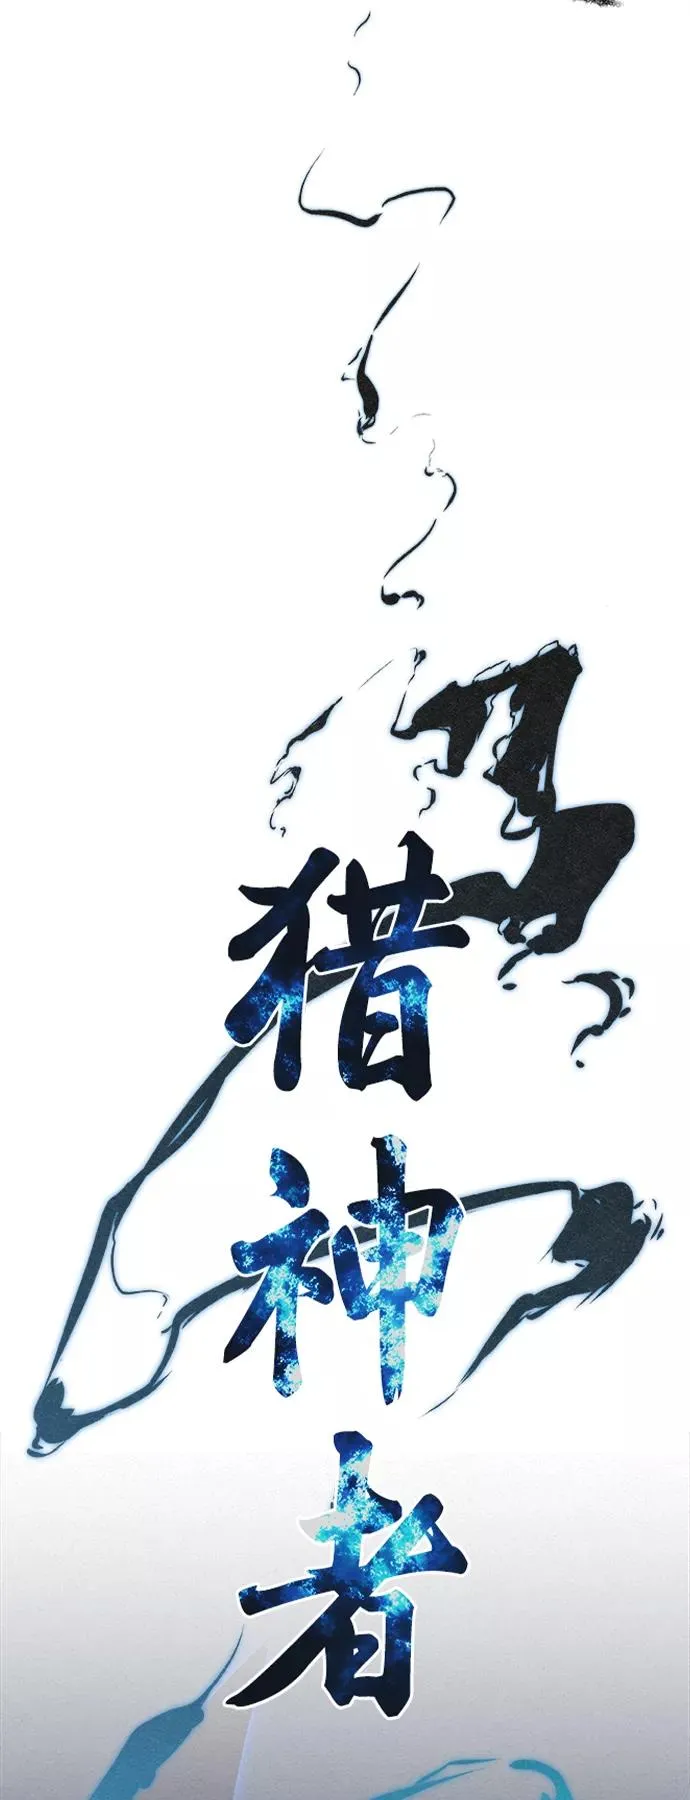 猎神者